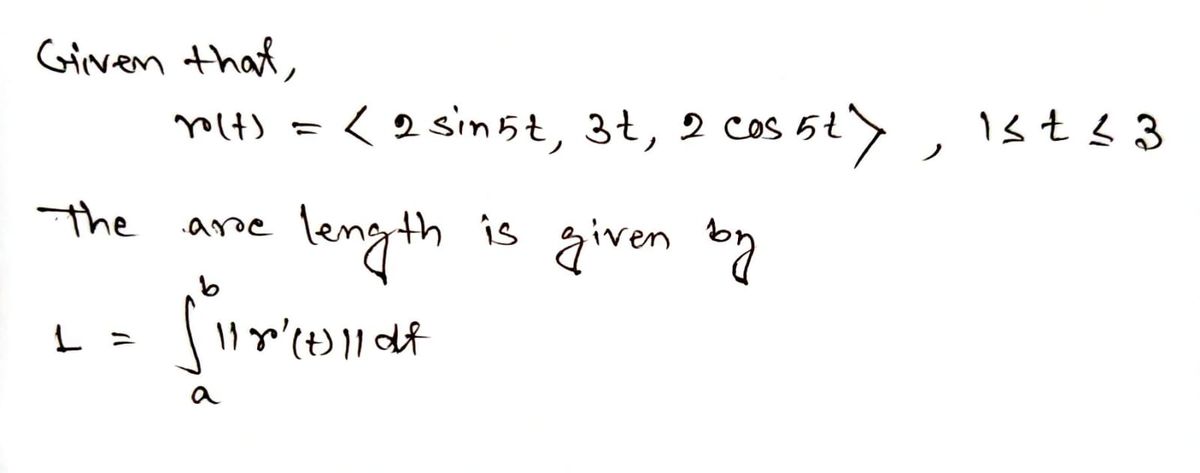 Given that,
r(t) = < 2 sin 5t, 3t, 2 cos 5t > , 1 ≤ t ≤ 3
The arc length is given by
L = ∫_a^b ||r'(t)|| dt